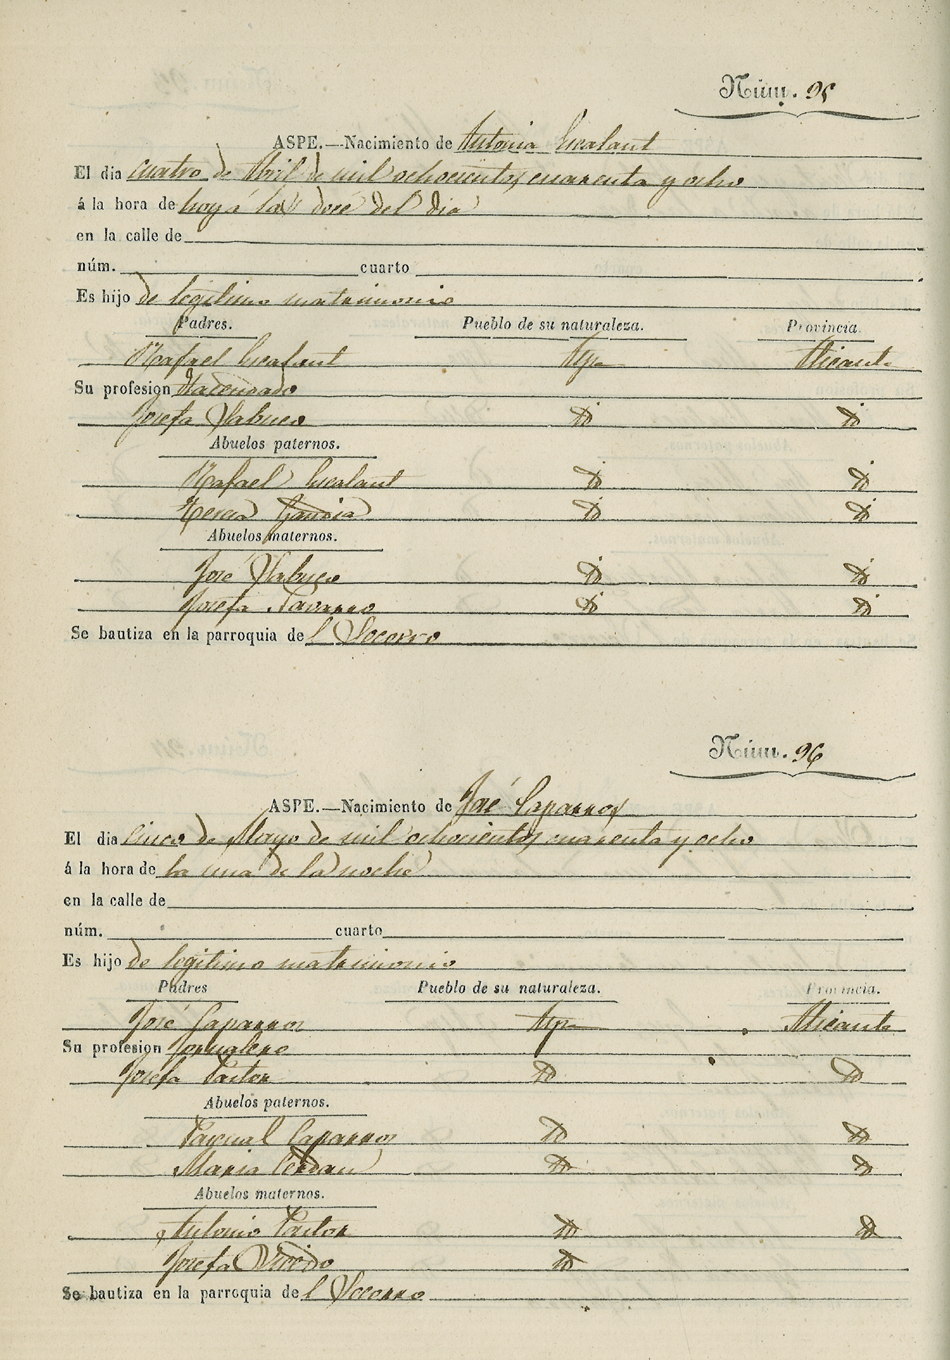 Núm. 95
ASPE.—Nacimiento de Antonia Escalant
El dia cuatro de Abril de mil ochocientos cuarenta y ocho
á la hora de hoy á las doce del dia
en la calle de
núm. cuarto
Es hijo de legitimo matrimonio
Padres. Pueblo de su naturaleza. Provincia.
Rafael Escalant Aspe Alicante
Su profesion Hacendado
Josefa
Abuelos paternos.
Rafael Escalant
Teresa
Abuelos maternos.
José
Josefa Navarro
Se bautiza en la parroquia de l Socorro
Núm. 96
ASPE.—Nacimiento de José Caparros
El dia Cinco de Mayo de mil ochocientos cuarenta y ocho
á la hora de la una de la noche
en la calle de
núm. cuarto
Es hijo de legitimo matrimonio
Padres Pueblo de su naturaleza. Provincia.
José Caparros Aspe Alicante
Su profesion Jornalero
Josefa Pastor
Abuelos paternos.
Pascual Caparros
Maria Cerdan
Abuelos maternos.
Antonio Pastor
Josefa
Se bautiza en la parroquia de l Socorro